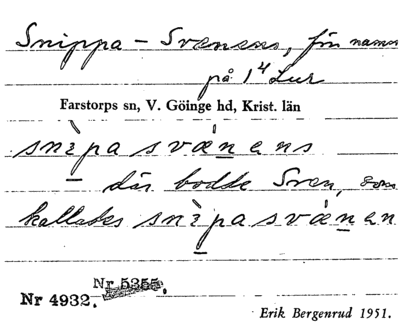 Snippa-Svenens, fin namn
på 1⁴ Lur
Farstorps sn, V. Göinge hd, Krist. län
snìpa svǽnens
där bodde Sven, som
kallades snìpa svǽnen
Nr 5355.
Nr 4932.
Erik Bergenrud 1951.